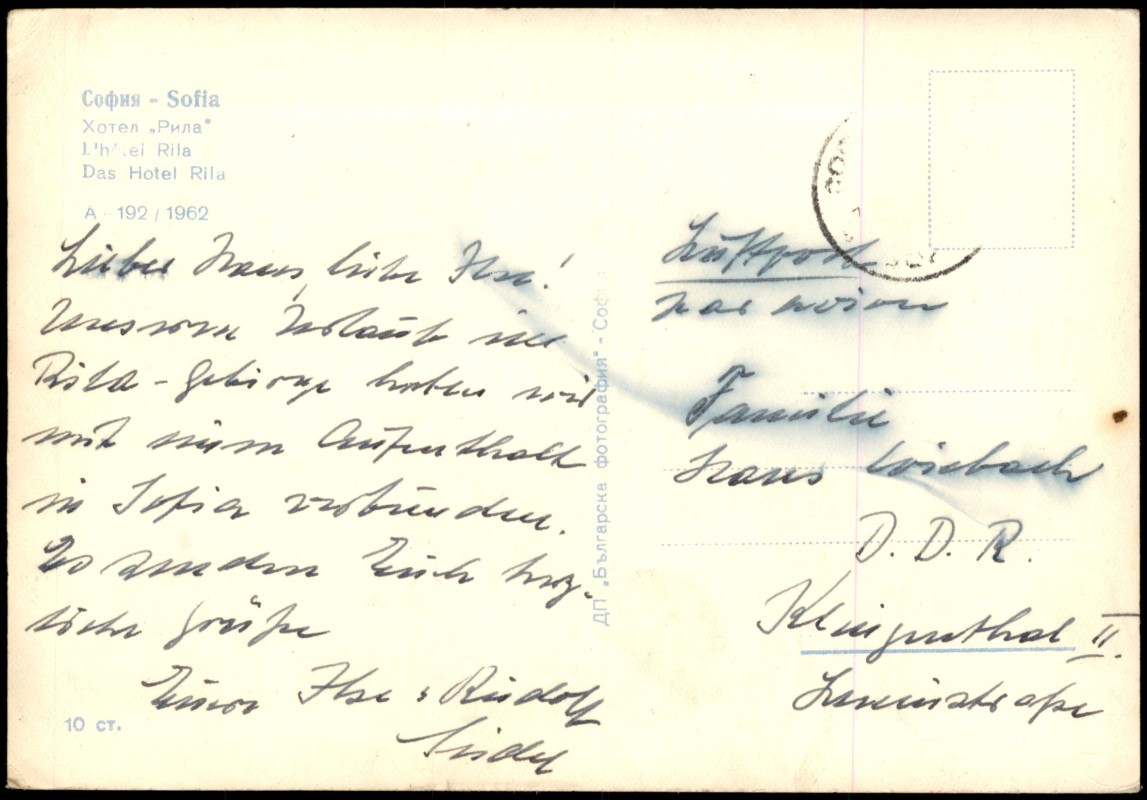 София - Sofia
Хотел „Рила"
L'hôtel Rila
Das Hotel Rila
A - 192 / 1962
Lieber Hans, liebe Ilse!
Unseren Urlaub im
Rila-Gebirge haben wir
mit einem Aufenthalt
in Sofia verbunden.
Es senden Euch herz-
liche Grüße
Eure Ilse + Rudolf
Seidel
10 ст.
ДП „Българска фотография" - София
Luftpost
par avion
Familie
Hans
D. D. R.
Klingenthal II